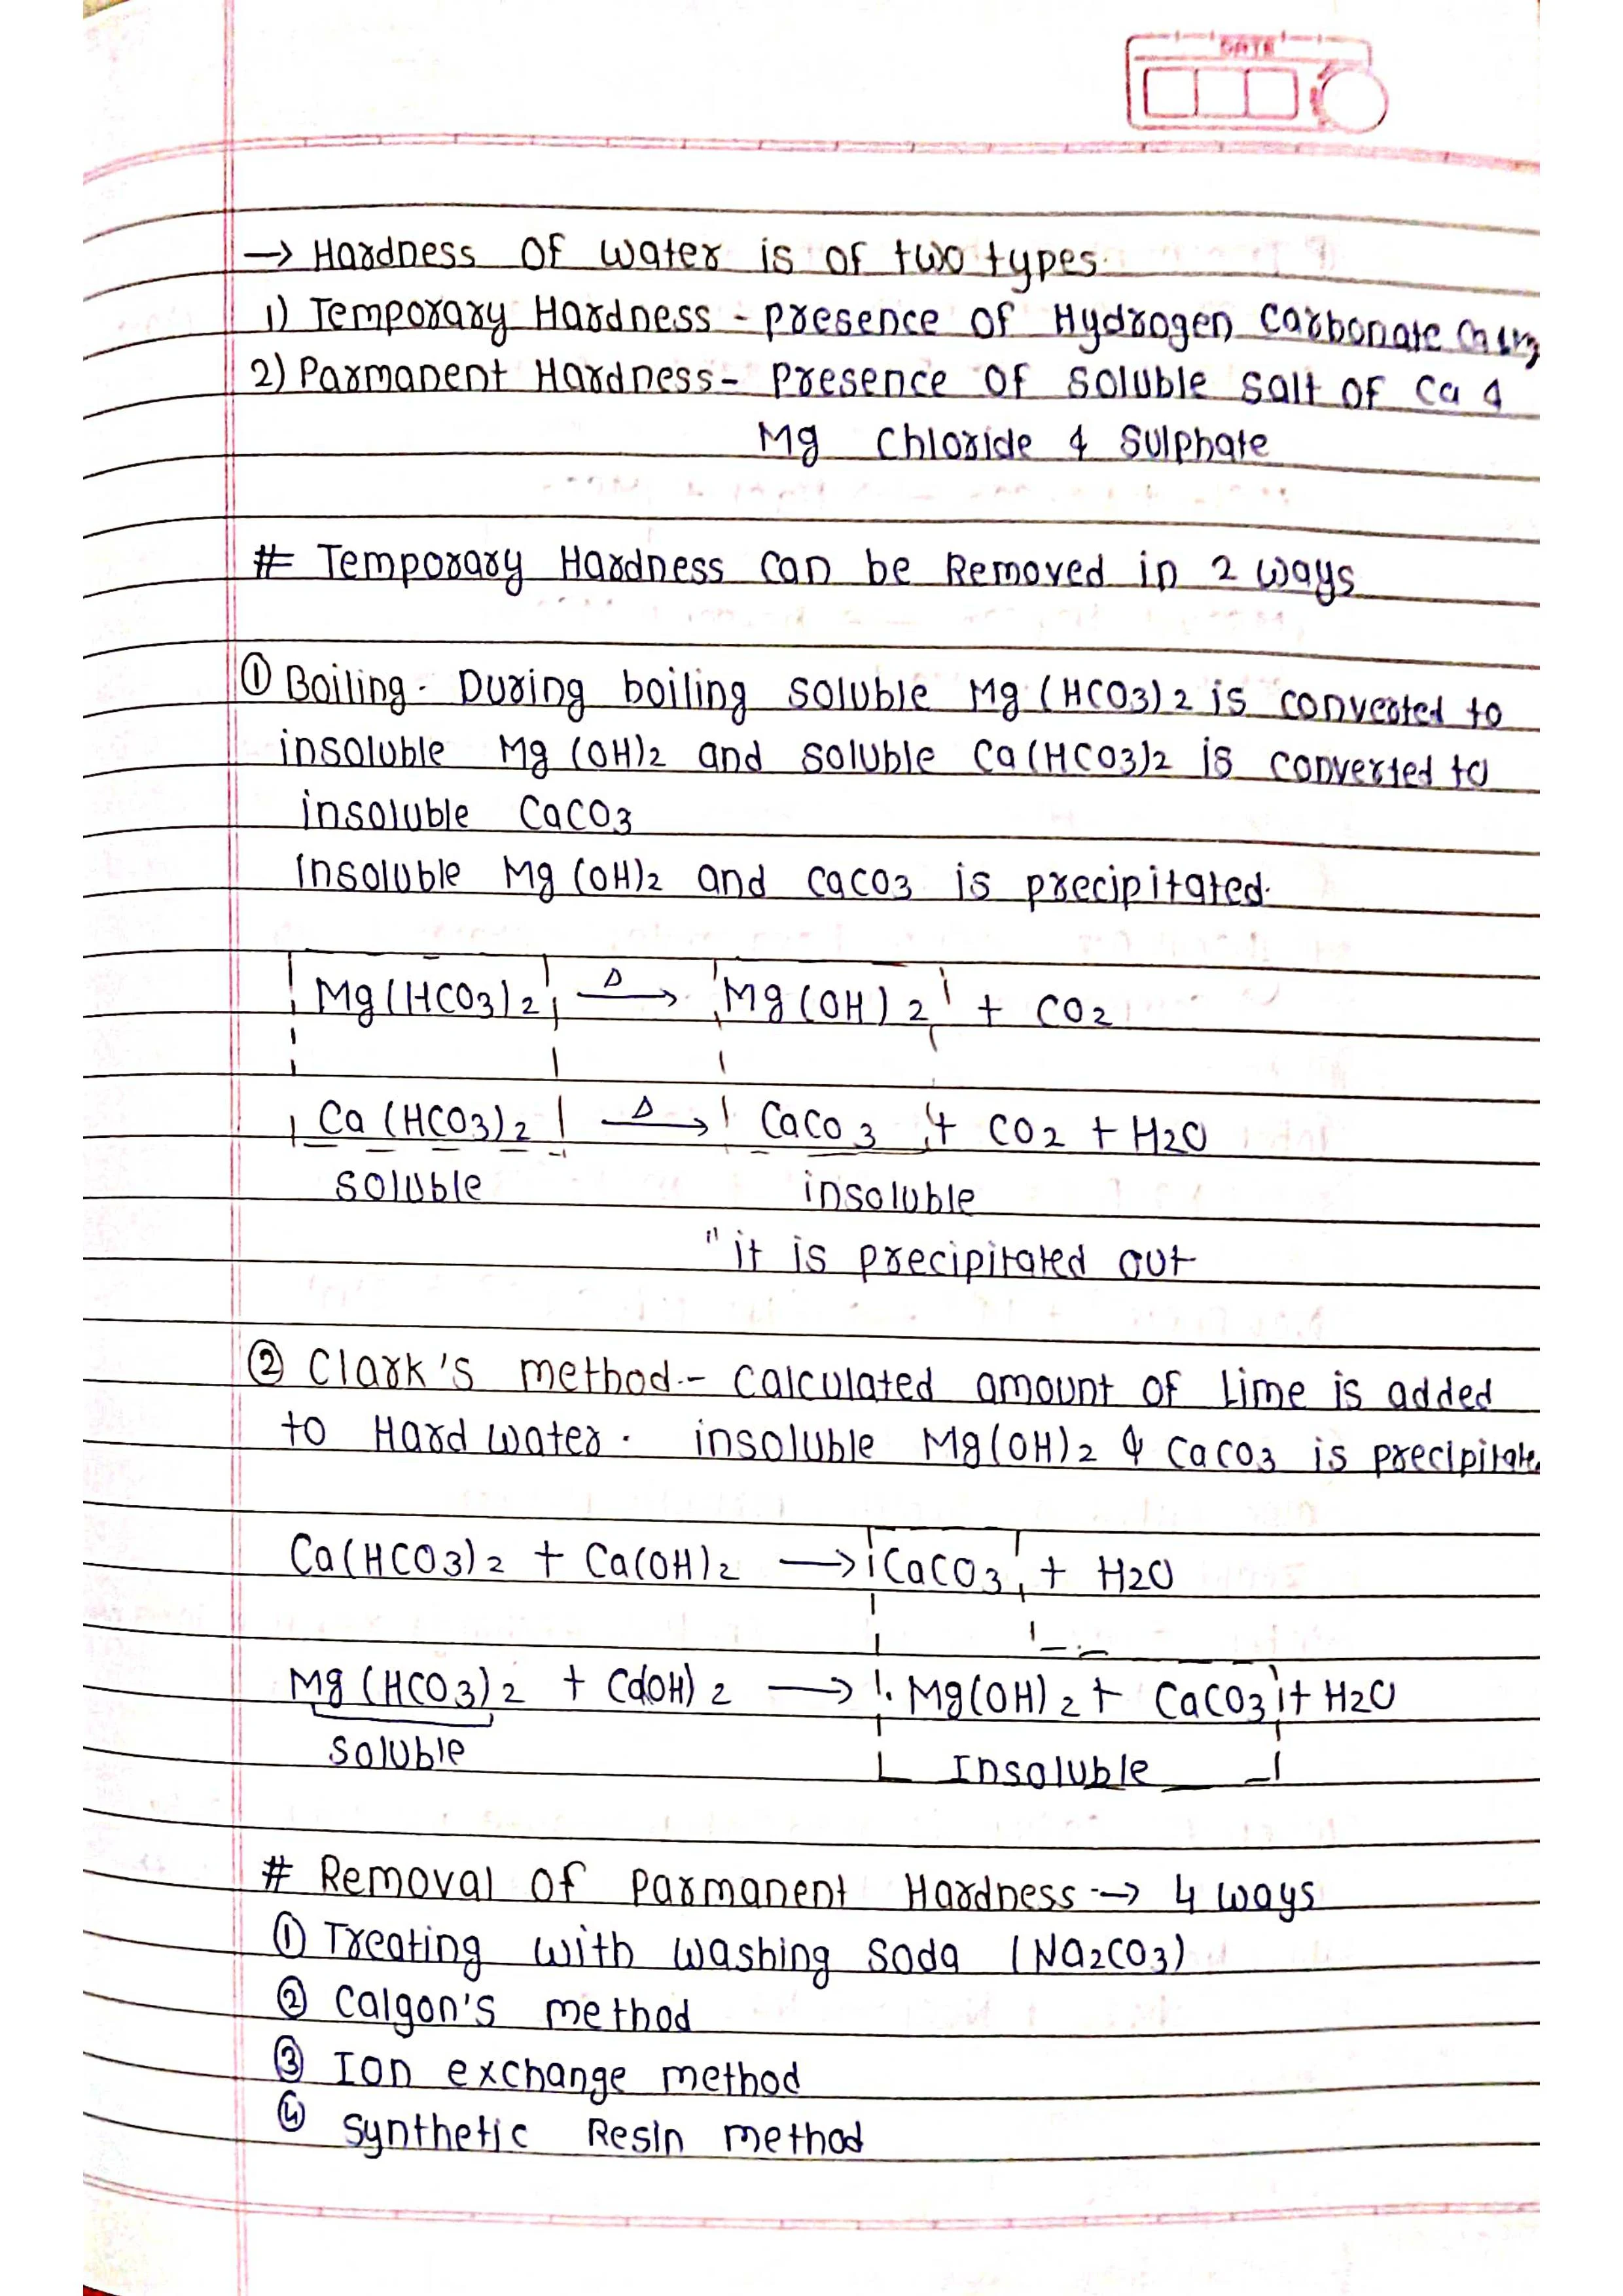 DATE
→ Hardness of water is of two types.
1) Temporary Hardness - presence of Hydrogen Carbonate
2) Parmanent Hardness - presence of soluble salt of Ca &
Mg Chloride & Sulphate
# Temporary Hardness can be Removed in 2 ways
① Boiling - During boiling soluble Mg(HCO3)2 is converted to
insoluble Mg(OH)2 and soluble Ca(HCO3)2 is converted to
insoluble CaCO3
Insoluble Mg(OH)2 and CaCO3 is precipitated.
Mg(HCO3)2 Δ→ Mg(OH)2 + CO2
Ca(HCO3)2 Δ→ CaCO3 + CO2 + H2O
soluble insoluble
"it is precipitated out
② Clark's method - calculated amount of Lime is added
to Hard water. insoluble Mg(OH)2 & CaCO3 is precipitate
Ca(HCO3)2 + Ca(OH)2 → CaCO3 + H2O
Mg(HCO3)2 + Ca(OH)2 → Mg(OH)2 + CaCO3 + H2O
soluble Insoluble
# Removal of Parmanent Hardness → 4 ways
① Treating with washing soda (Na2CO3)
② Calgon's method
③ Ion exchange method
④ synthetic Resin method